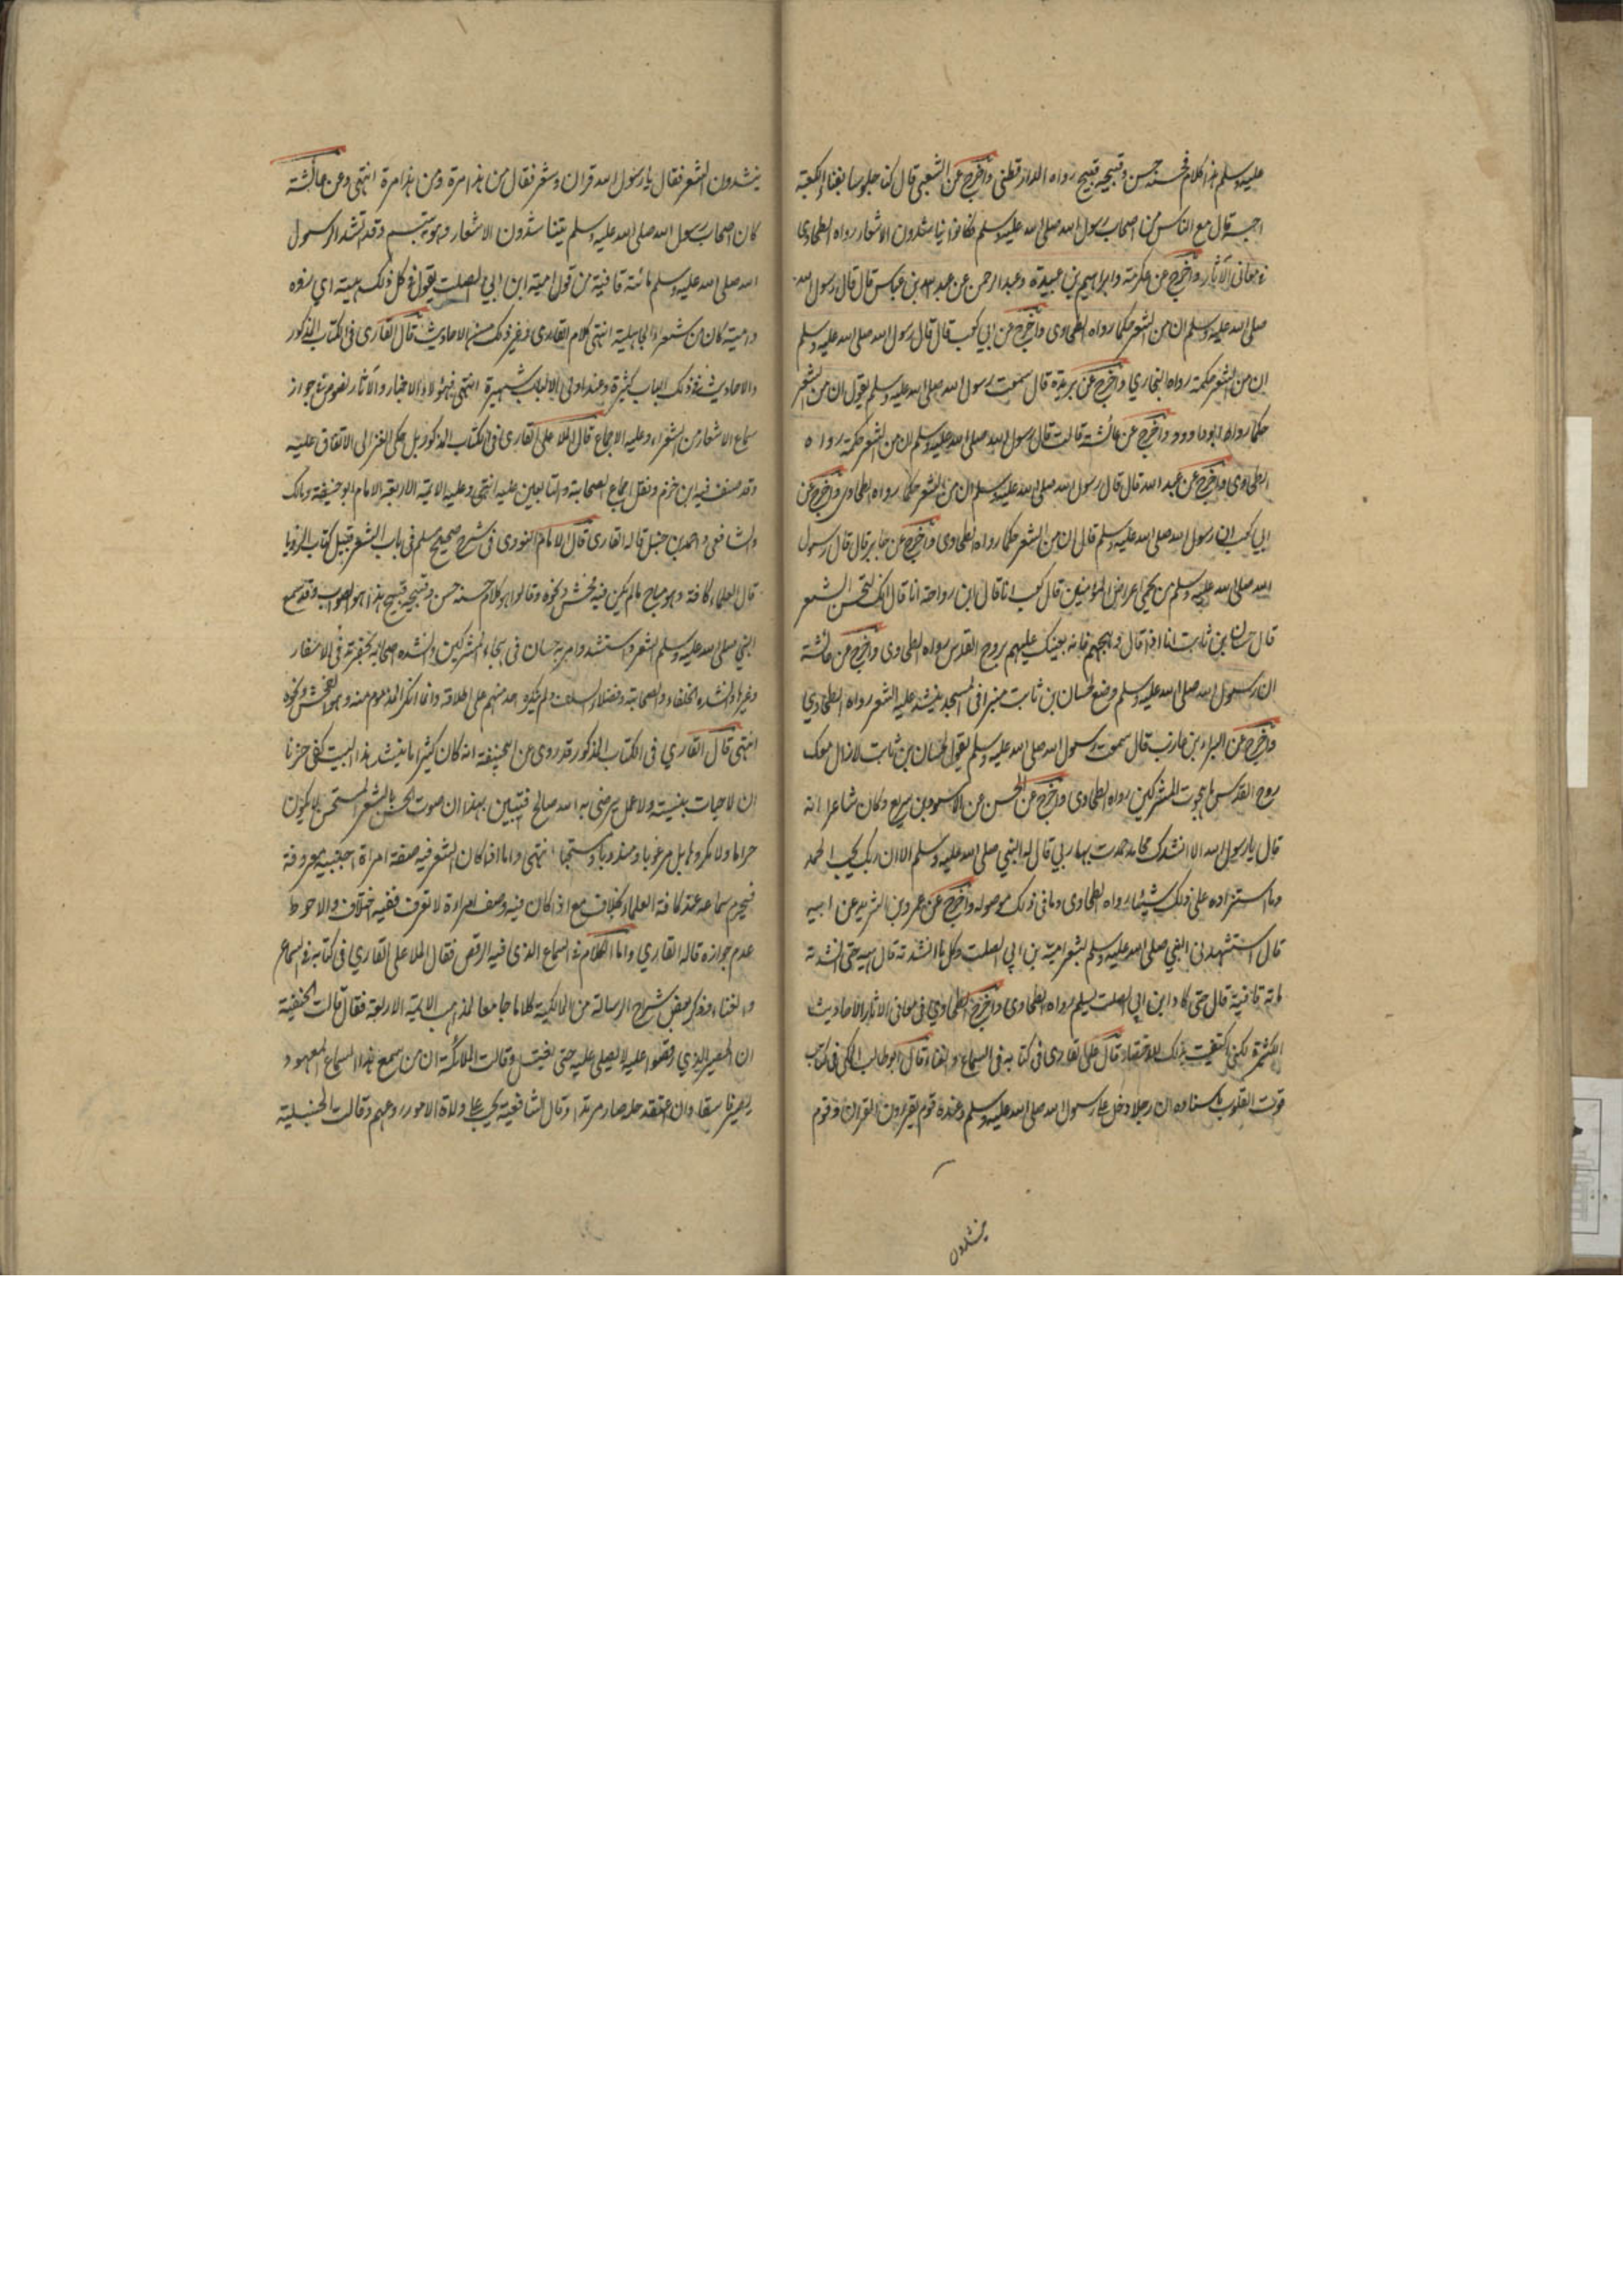 عليه وسلم هذا كلام فحسنه حسن وقبيحه قبيح رواه الدارقطني واخرج عن الشعبي قال كنا جلوسا بفناء الكعبة
احسبه قال مع الناس من اصحاب رسول الله صلى الله عليه وسلم فكانوا يتناشدون الاشعار رواه الطحاوي
في معاني الآثار واخرج عن عكرمة وابراهيم بن عبيدة وعبد الرحمن عن عبد الله بن عباس قال قال رسول الله
صلى الله عليه وسلم ان من الشعر حكما رواه الطحاوى واخرج عن ابي كعب قال قال رسول الله صلى الله عليه وسلم
ان من الشعر حكمة رواه البخاري واخرج عن بريدة قال سمعت رسول الله صلى الله عليه وسلم يقول ان من الشعر
حكما رواه ابوداوود واخرج عن عائشة قالت قال رسول الله صلى الله عليه وسلم ان من الشعر حكمة رواه
الطحاوى واخرج عن عبد الله قال قال رسول الله صلى الله عليه وسلم ان من الشعر حكما رواه الطحاوى واخرج عن
ابي كعب ان رسول الله صلى الله عليه وسلم قال ان من الشعر حكما رواه الطحاوى واخرج عن جابر قال قال رسول
الله صلى الله عليه وسلم من يحمي اعراض المؤمنين قال كعب انا قال ابن رواحة انا قال انك لتحسن الشعر
قال حسان بن ثابت انا اذا قال واهجهم فانه يعينك عليهم روح القدس رواه الطحاوى واخرج عن عائشة
ان رسول الله صلى الله عليه وسلم وضع لحسان بن ثابت منبرا في المسجد ينشد عليه الشعر رواه الطحاوي
واخرج عن البراء بن عازب قال سمعت رسول الله صلى الله عليه وسلم يقول لحسان بن ثابت لا زال معك
روح القدس ما هجوت المشركين رواه الطحاوى واخرج عن الحسن عن الاسود بن سريع وكان شاعرا انه
قال يا رسول الله الا انشدك محامد حمدت بها ربي قال له النبي صلى الله عليه وسلم الا ان ربك يحب الحمد
وما استزاده على ذلك شيئا رواه الطحاوى وما في ذلك موصوله واخرج عن عمرو بن الشريد عن ابيه
قال استشهدني النبي صلى الله عليه وسلم بشعر امية بن ابي الصلت وكل ما انشدته قال هيه حتى انشدته
مائة قافية قال حتى كاد ابن ابي الصلت يسلم رواه الطحاوى واخرج الطحاوي في معاني الآثار الاحاديث
الكثيرة لكني اكتفيت بذلك للاختصار قال على القارى في كتابه في السماع والغناء قال ابو طالب المكي في كتاب
قوت القلوب باسناده ان رجلا دخل على رسول الله صلى الله عليه وسلم وعنده قوم يقرون القران وقوم
ينشدون
ينشدون الشعر فقال يا رسول الله قران وشعر فقال من هذا مرة ومن هذا مرة انتهى وعن عائشة
كان اصحاب رسول الله صلى الله عليه وسلم يتناشدون الاشعار وهو يتبسم وقد انشد الرسول
الله صلى الله عليه وسلم مائة قافية من قول امية ابن ابي الصلت يقول في كل ذلك هيه اي زده
وامية كان من شعراء الجاهلية انتهى كلام القارى وغير ذلك من الاحاديث قال القارى في الكتاب المذكور
والاحاديث في ذلك الباب كثيرة وعند اولى الالباب شهيرة انتهى فهؤلاء الاخبار والآثار نصوص في جواز
سماع الاشعار من الشعراء وعليه الاجماع قال الملا على القارى في الكتاب المذكور بل حكى الغزالى الاتفاق عليه
وقد صنف فيه ابن حزم ونقل اجماع الصحابة والتابعين عليه انتهى وعليه الايمة الاربعة الامام ابو حنيفة ومالك
والشافعى واحمد بن حنبل قاله القارى قال الامام النووى فى شرح صحيح مسلم فى باب الشعر قبيل كتاب الرويا
قال العلماء كافة وهو مباح ما لم يكن فيه فحش ونحوه وقالوا هو كلام حسنه حسن وقبيحه قبيح هذا هو الصواب وقد سمع
النبي صلى الله عليه وسلم الشعر واستنشد وامر به حسان في هجاء المشركين وانشده اصحابه بحضرته في الاسفار
وغيرها وانشده الخلفاء والصحابة وفضلاء السلف ولم ينكره احد منهم على اطلاقه وانما انكر المذموم منه وهو الفحش ونحوه
انتهى قال القاري في الكتاب المذكور وقد روى عن ابي حنيفة انه كان كثيرا ما ينشد هذا البيت كفى حزنا
ان لا حيات هنية ولا عمل يرضى به الله صالح فتبين بهذا ان صوت الحسن بالشعر المستحسن لا يكون
حراما ولا مكروها بل مرغوبا ومندوبا ومستحبا انتهى واما اذا كان الشعر فيه صفة امراة اجنبية معروفة
فيحرم سماعه عند كافة العلماء بخلاف مع اذا كان فيه وصف امراءة لا تعرف ففيه اختلاف والاحوط
عدم جوازه قاله القاري واما الكلام في السماع الذى فيه الرقص فقال الملا على القاري في كتابه في السماع
والغناء وذكر بعض شراح الرسالة من المالكية كلاما جامعا لمذاهب الايمة الاربعة فقال قالت الحنفية
ان الحصير الذي رقصوا عليه لا يصلى عليه حتى يغسل وقالت المالكية ان من سمع هذا السماع المعهود
يصير فاسقا وان اعتقد حله صار مرتدا وقال الشافعية يجب على ولاة الامور ردعهم وقالت الحنبلية